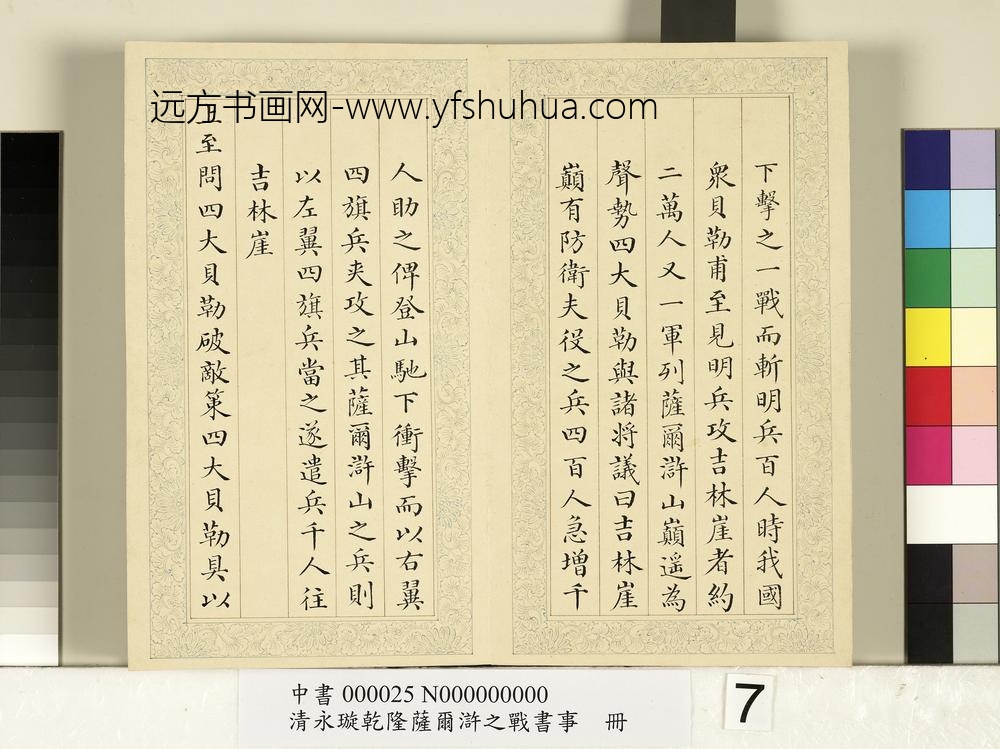 远方书画网-www.yfshuhua.com
下擊之一戰而斬明兵百人時我國
衆貝勒甫至見明兵攻吉林崖者約
二萬人又一軍列薩爾滸山巔遥為
聲勢四大貝勒與諸将議曰吉林崖
巔有防衛夫役之兵四百人急增千
人助之俾登山馳下衝擊而以右翼
四旗兵夾攻之其薩爾滸山之兵則
以左翼四旗兵當之遂遣兵千人往
吉林崖
至問四大貝勒破敵策四大貝勒具以
中書 000025 N000000000
清永璇乾隆薩爾滸之戰書事 冊
7